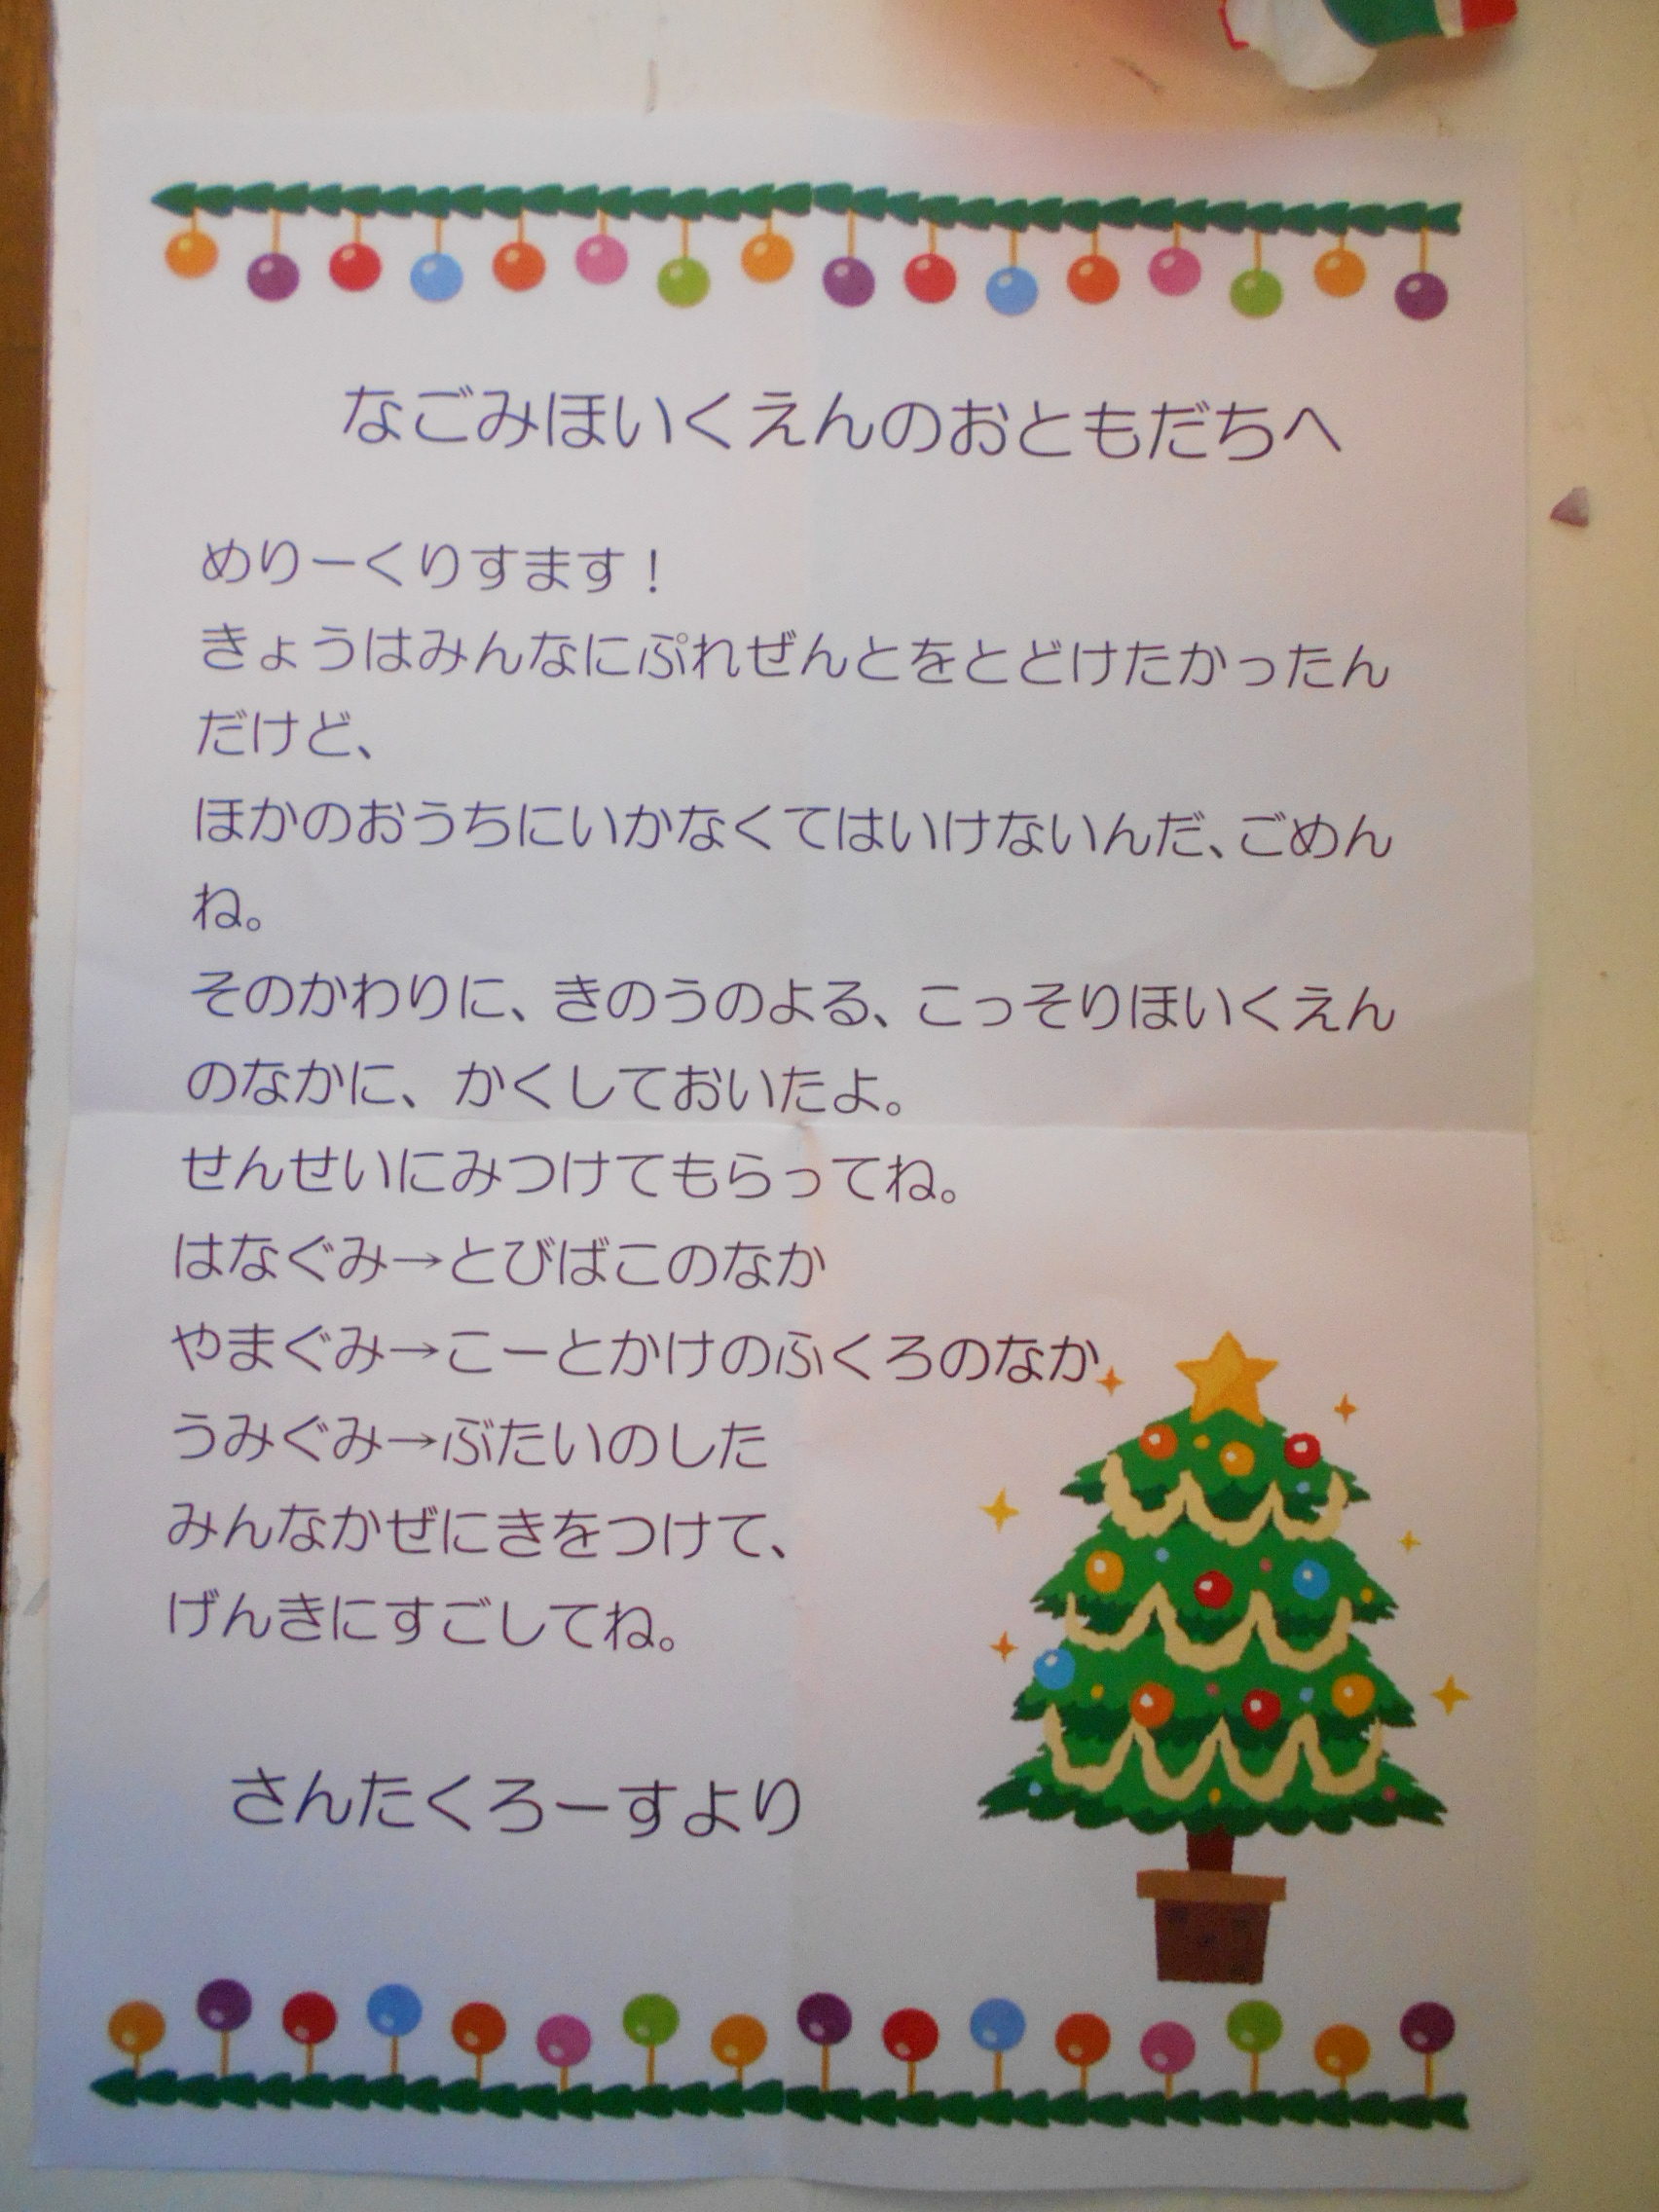 なごみほいくえんのおともだちへ
めりーくりすます！
きょうはみんなにぷれぜんとをとどけたかったん
だけど、
ほかのおうちにいかなくてはいけないんだ、ごめん
ね。
そのかわりに、きのうのよる、こっそりほいくえん
のなかに、かくしておいたよ。
せんせいにみつけてもらってね。
はなぐみ→とびばこのなか
やまぐみ→こーとかけのふくろのなか
うみぐみ→ぶたいのした
みんなかぜにきをつけて、
げんきにすごしてね。
さんたくろーすより